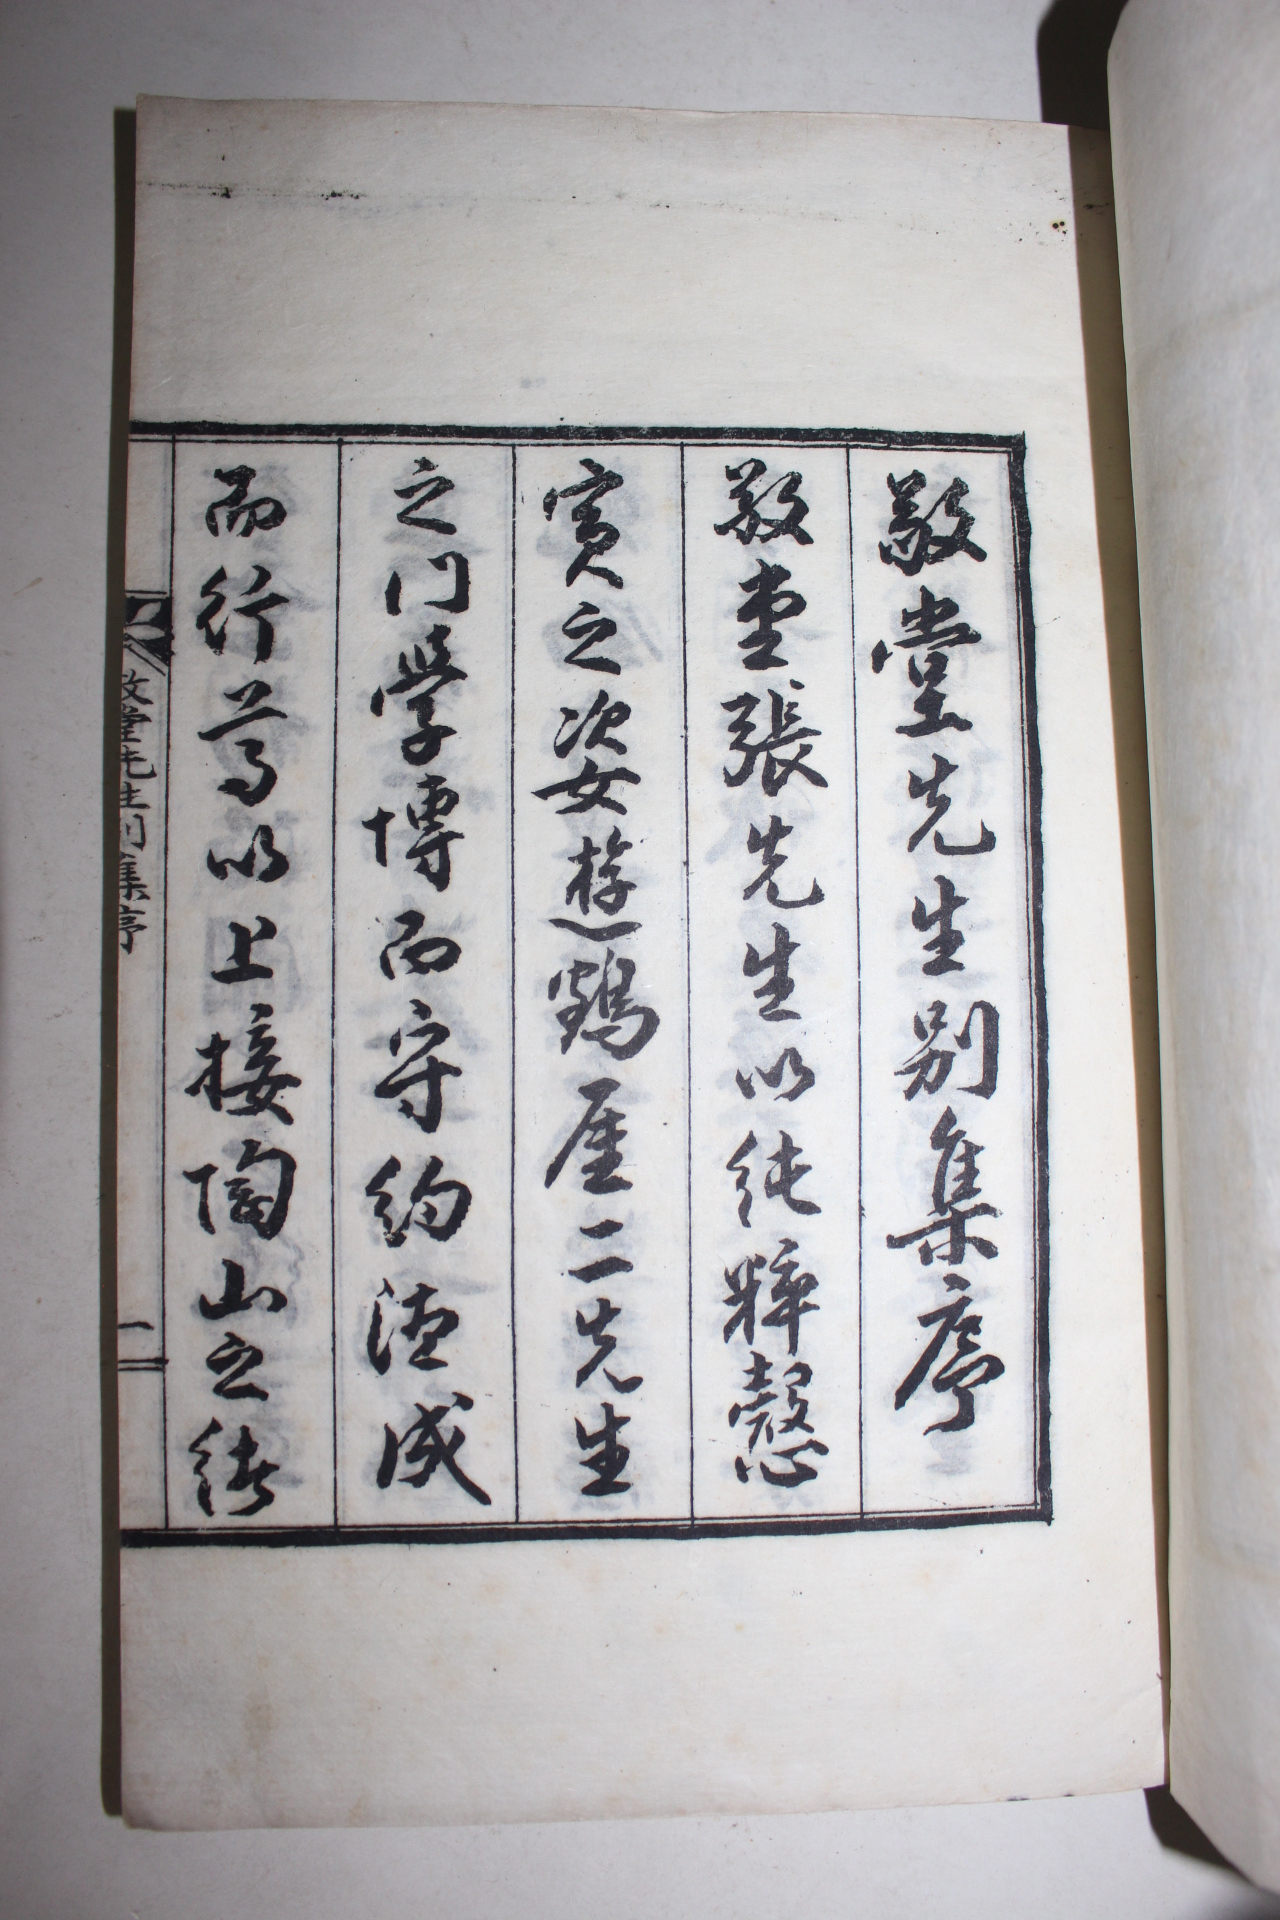 敬堂先生別集序
敬堂張先生以純粹慤
實之姿遊鶴厓二先生
之門學博而守約德成
而行尊以上接陶山之緖
敬堂先生別集序
一